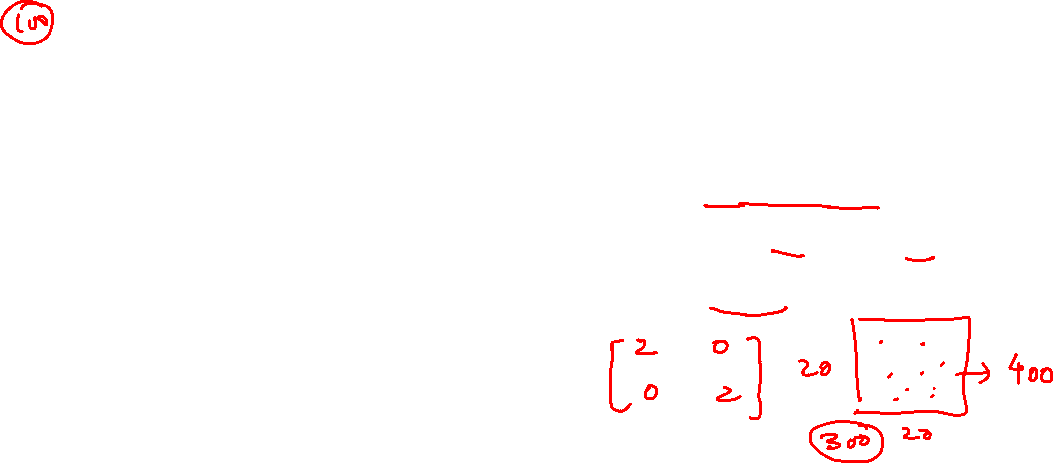 100
2 0
0 2
20
400
300
20